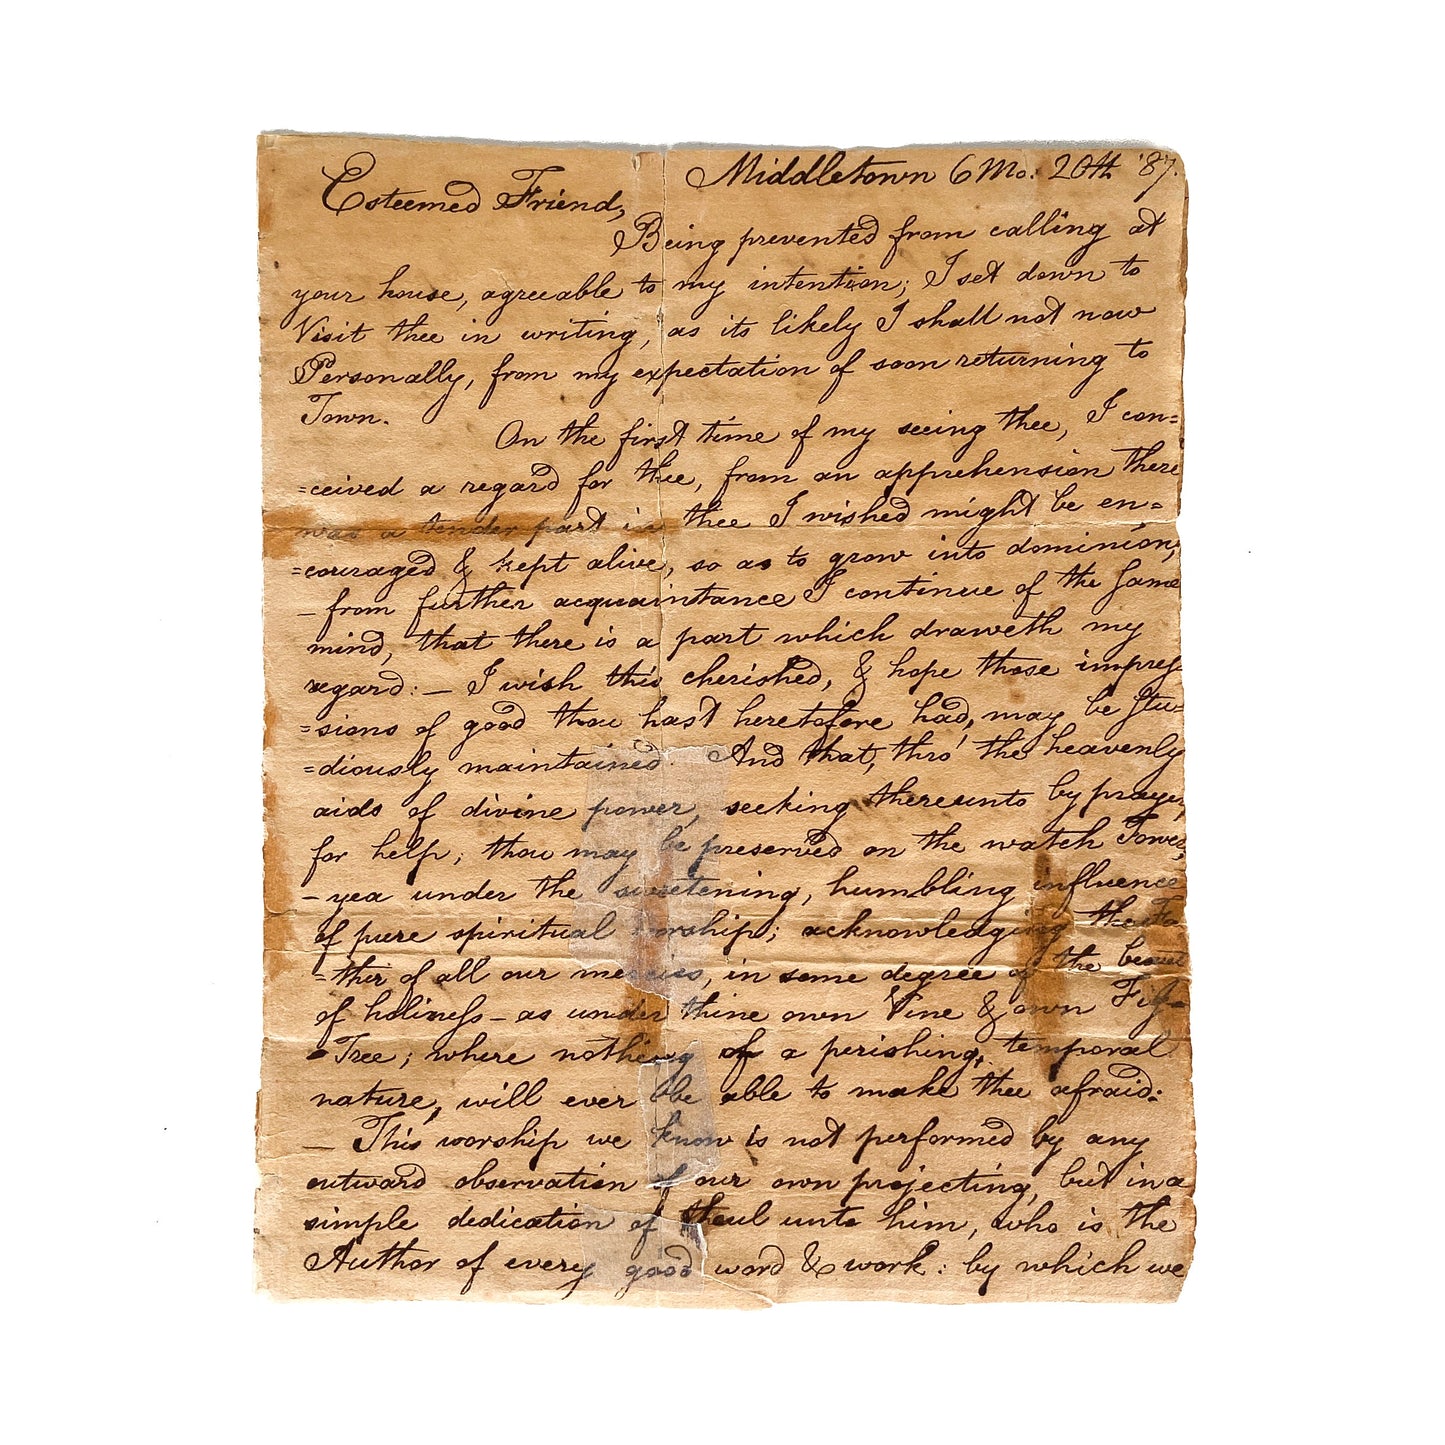 Middletown 6 Mo. 20th '87.
Esteemed Friend,
Being prevented from calling at
your house, agreeable to my intention; I set down to
Visit thee in writing, as its likely I shall not now
Personally, from my expectation of soon returning to
Town.
On the first time of my seeing thee, I con=
=ceived a regard for thee, from an apprehension there
was a tender part in thee I wished might be en=
=couraged & kept alive, so as to grow into dominion;
– from further acquaintance I continue of the same
mind, that there is a part which draweth my
regard: – I wish this cherished, & hope those impres=
=sions of good thou hast heretofore had, may be stu=
=diously maintained. And that, thro' the heavenly
aids of divine power, seeking thereunto by prayer,
for help; thou may be preserved on the watch Tower,
– yea under the sweetening, humbling influence
of pure spiritual worship; acknowledging the Fa
=ther of all our mercies, in some degree of the beauty
of holiness – as under thine own Vine & own Fig=
=Tree; where nothing of a perishing, temporal
nature, will ever be able to make thee afraid:
– This worship we know is not performed by any
outward observation of our own projecting, but in a
simple dedication of soul unto him, who is the
Author of every good word & work: by which we